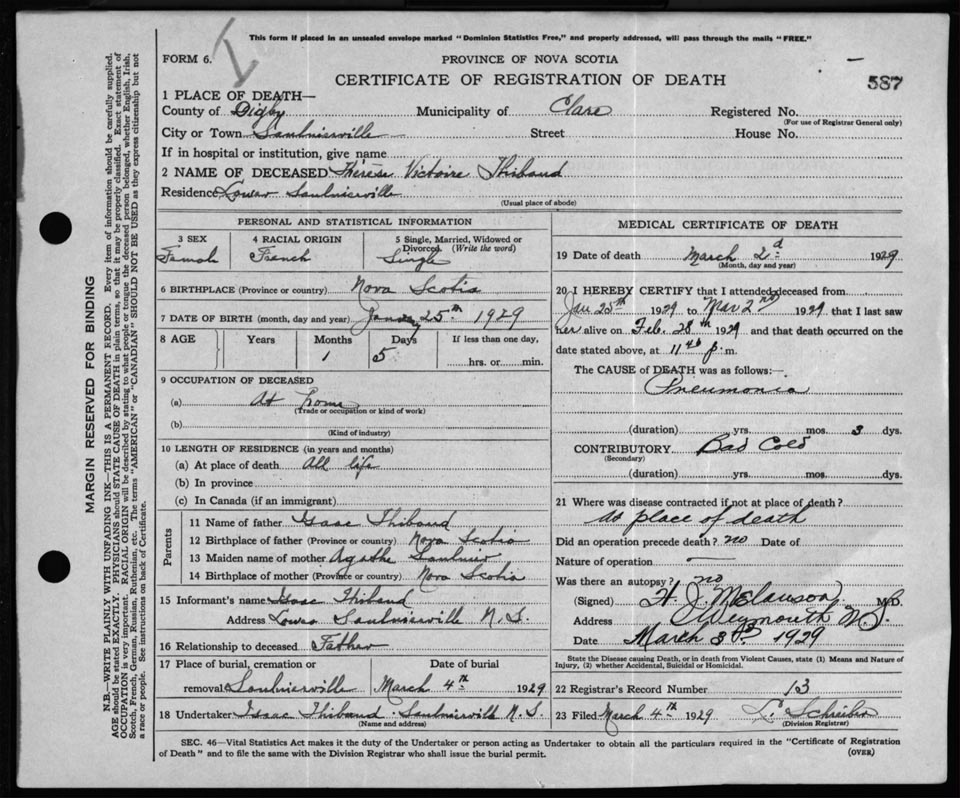 This form if placed in an unsealed envelope marked "Dominion Statistics Free," and properly addressed, will pass through the mails "FREE."
FORM 6.
PROVINCE OF NOVA SCOTIA
CERTIFICATE OF REGISTRATION OF DEATH
587
1 PLACE OF DEATH—
County of Digby Municipality of Clare Registered No.
(For use of Registrar General only)
City or Town Saulnierville Street House No.
If in hospital or institution, give name
2 NAME OF DECEASED Thérèse Victoire Thibaud
Residence Lower Saulnierville
(Usual place of abode)
PERSONAL AND STATISTICAL INFORMATION
3 SEX 4 RACIAL ORIGIN 5 Single, Married, Widowed or Divorced (Write the word)
Female French Single
6 BIRTHPLACE (Province or country) Nova Scotia
7 DATE OF BIRTH (month, day and year) January 25th 1929
8 AGE Years Months Days If less than one day,
1 5 hrs. or min.
9 OCCUPATION OF DECEASED
(a) At home
(Trade or occupation or kind of work)
(b)
(Kind of industry)
10 LENGTH OF RESIDENCE (in years and months)
(a) At place of death All life
(b) In province
(c) In Canada (if an immigrant)
Parents
11 Name of father Isaac Thibaud
12 Birthplace of father (Province or country) Nova Scotia
13 Maiden name of mother Agathe Saulnier
14 Birthplace of mother (Province or country) Nova Scotia
15 Informant's name Isaac Thibaud
Address Lower Saulnierville N. S.
16 Relationship to deceased Father
17 Place of burial, cremation or Date of burial
removal Saulnierville March 4th 1929
18 Undertaker Isaac Thibaud Saulnierville N. S.
(Name and address)
MEDICAL CERTIFICATE OF DEATH
19 Date of death March 2d 1929
(Month, day and year)
20 I HEREBY CERTIFY that I attended deceased from
Jan 25th 1929 to Mar 2nd 1929 that I last saw
her alive on Feb. 28th 1929 and that death occurred on
date stated above, at 11 p. m.
The CAUSE of DEATH was as follows:—
Pneumonia
(duration) yrs. mos. 3 dys.
CONTRIBUTORY Bad Cold
(Secondary)
(duration) yrs. mos. dys.
21 Where was disease contracted if not at place of death?
At place of death
Did an operation precede death? no Date of
Nature of operation —
Was there an autopsy? no
(Signed) M.D.
Address Weymouth N.S.
Date March 3rd 1929
State the Disease causing Death, or in death from Violent Causes, state (1) Means and Nature of
Injury, (2) whether Accidental, Suicidal or Homicidal.
22 Registrar's Record Number 13
23 Filed March 4th 1929
(Division Registrar)
SEC. 46—Vital Statistics Act makes it the duty of the Undertaker or person acting as Undertaker to obtain all the particulars required in the "Certificate of Registration
of Death" and to file the same with the Division Registrar who shall issue the burial permit. (OVER)
MARGIN RESERVED FOR BINDING
N.B.—WRITE PLAINLY WITH UNFADING INK—THIS IS A PERMANENT RECORD. Every item of information should be carefully supplied.
AGE should be stated EXACTLY. PHYSICIANS should STATE CAUSE OF DEATH in plain terms, so that it may be properly classified. Exact statement of
OCCUPATION is very important. RACIAL ORIGIN will be described by stating to what people or tongue the deceased person belonged, whether English, Irish,
Scotch, French, German, Russian, Ruthenian, etc. The terms "AMERICAN" or "CANADIAN" SHOULD NOT BE USED as they express citizenship but not
a race or people. See instructions on back of Certificate.